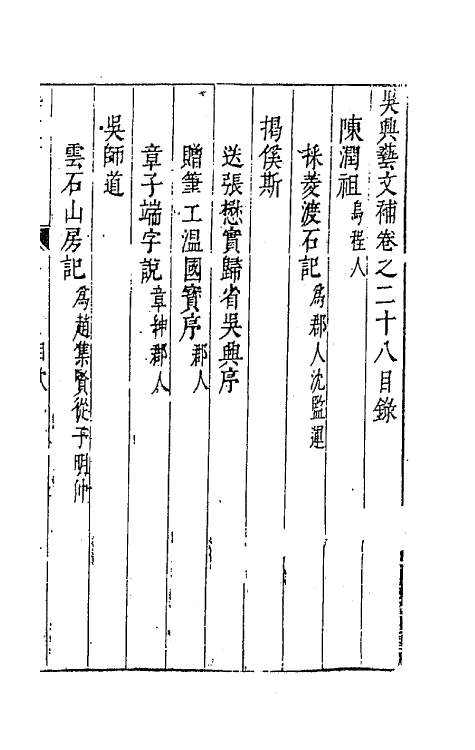 吳興藝文補卷之二十八目錄
陳潤祖烏程人
採菱渡石記為郡人沈監運
揭傒斯
送張懋實歸省吳興序
贈筆工溫國寶序郡人
章子端字說章紳郡人
吳師道
雲石山房記為趙集賢從子明仲
目次